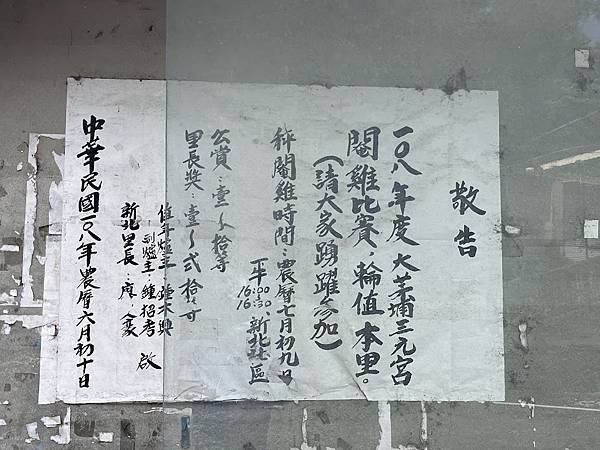 敬告
一〇八年度大茅埔三元宮
閹雞比賽，輪值本里。
(請大家踴躍參加)
秤閹雞時間：農曆七月初九日
下午
16:00
16:30、新北社區
公賞：壹～拾等
里長獎：壹～貳拾等
值年爐主
副爐主：鍾招考
新北里長：
啟
中華民國一〇八年農曆六月初十日